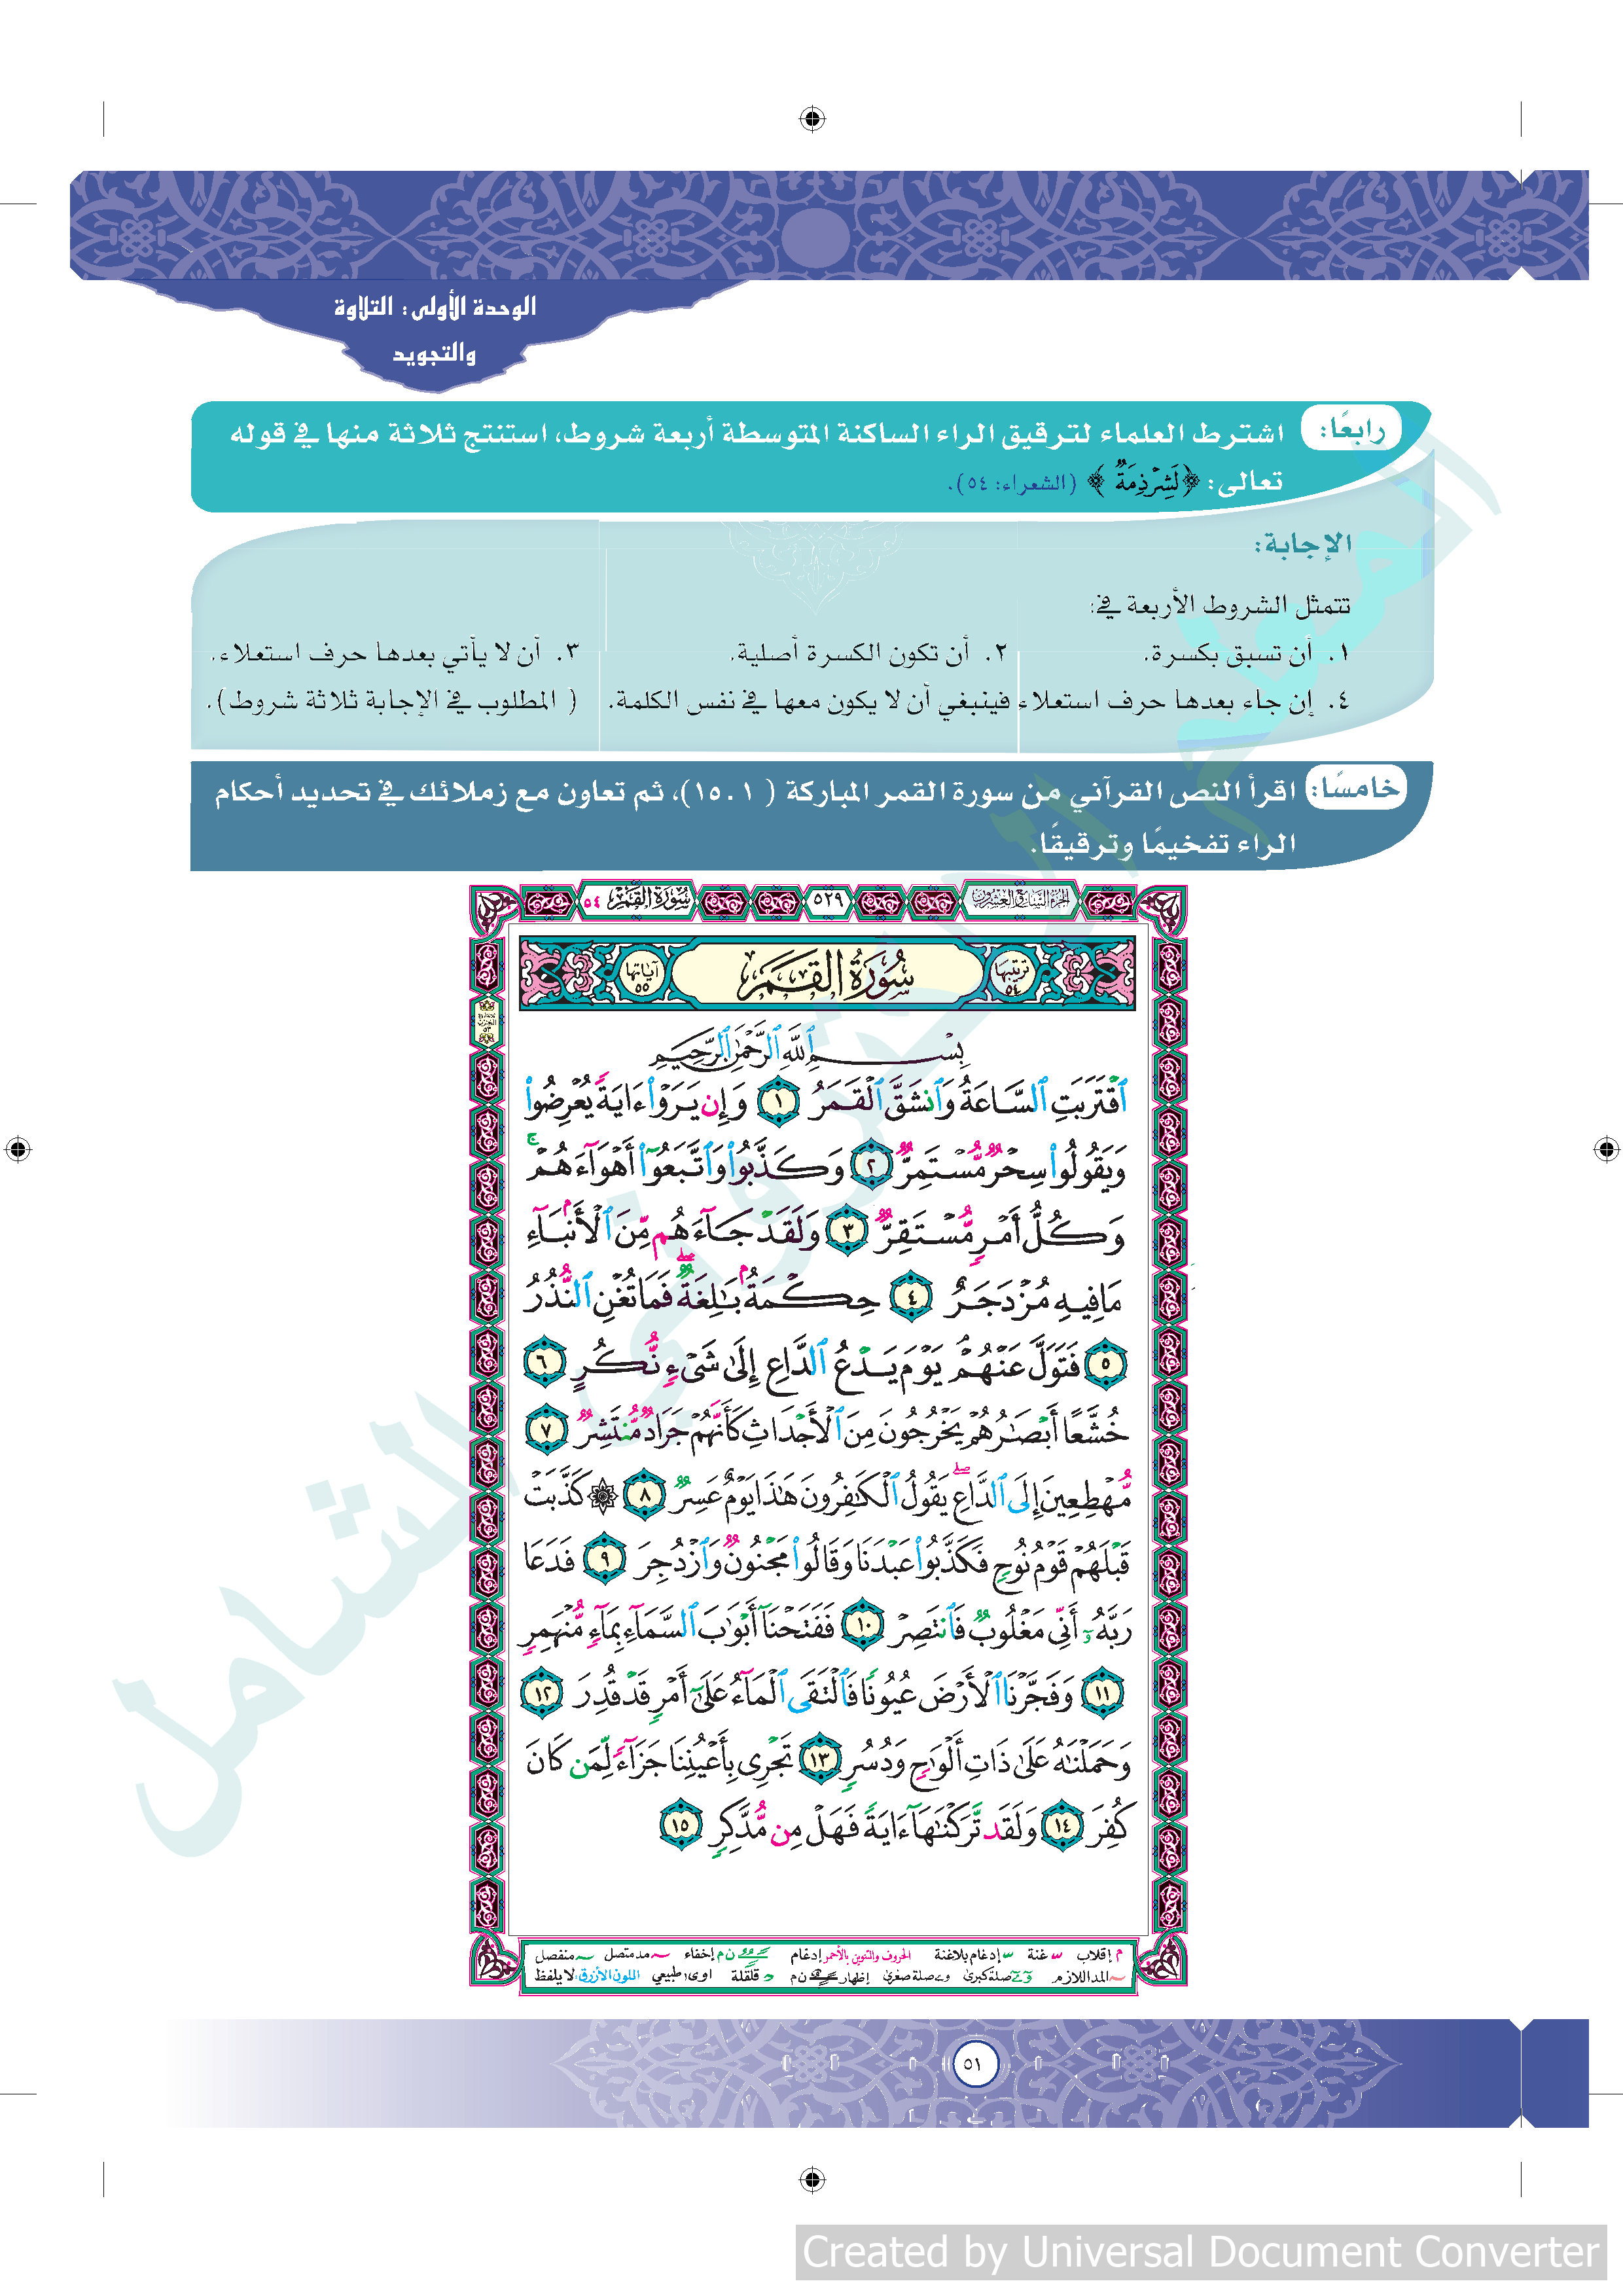 الوحدة الأولى: التلاوة
والتجويد
رابعًا: اشترط العلماء لترقيق الراء الساكنة المتوسطة أربعة شروط، استنتج ثلاثة منها في قوله
تعالى: ﴿لَشِرْذِمَةٌ﴾ (الشعراء: ٥٤).
الإجابة:
تتمثل الشروط الأربعة في:
١. أن تسبق بكسرة. ٢. أن تكون الكسرة أصلية. ٣. أن لا يأتي بعدها حرف استعلاء.
٤. إن جاء بعدها حرف استعلاء فينبغي أن لا يكون معها في نفس الكلمة. ( المطلوب في الإجابة ثلاثة شروط).
خامسًا: اقرأ النص القرآني من سورة القمر المباركة ( ١ . ١٥)، ثم تعاون مع زملائك في تحديد أحكام
الراء تفخيمًا وترقيقًا.
الجزء السابع والعشرون ٥٢٩ سورة القمر ٥٤
ترتيبها ٥٤ سُورَةُ القَمَر آياتها ٥٥
بِسْمِ ٱللَّهِ ٱلرَّحْمَٰنِ ٱلرَّحِيمِ
ٱقْتَرَبَتِ ٱلسَّاعَةُ وَٱنشَقَّ ٱلْقَمَرُ ١ وَإِن يَرَوْا۟ ءَايَةً يُعْرِضُوا۟
وَيَقُولُوا۟ سِحْرٌ مُّسْتَمِرٌّ ٢ وَكَذَّبُوا۟ وَٱتَّبَعُوٓا۟ أَهْوَآءَهُمْ ۚ
وَكُلُّ أَمْرٍ مُّسْتَقِرٌّ ٣ وَلَقَدْ جَآءَهُم مِّنَ ٱلْأَنۢبَآءِ
مَا فِيهِ مُزْدَجَرٌ ٤ حِكْمَةٌۢ بَٰلِغَةٌ ۖ فَمَا تُغْنِ ٱلنُّذُرُ
٥ فَتَوَلَّ عَنْهُمْ ۘ يَوْمَ يَدْعُ ٱلدَّاعِ إِلَىٰ شَىْءٍ نُّكُرٍ ٦
خُشَّعًا أَبْصَٰرُهُمْ يَخْرُجُونَ مِنَ ٱلْأَجْدَاثِ كَأَنَّهُمْ جَرَادٌ مُّنتَشِرٌ ٧
مُّهْطِعِينَ إِلَى ٱلدَّاعِ ۖ يَقُولُ ٱلْكَٰفِرُونَ هَٰذَا يَوْمٌ عَسِرٌ ٨ ۞ كَذَّبَتْ
قَبْلَهُمْ قَوْمُ نُوحٍ فَكَذَّبُوا۟ عَبْدَنَا وَقَالُوا۟ مَجْنُونٌ وَٱزْدُجِرَ ٩ فَدَعَا
رَبَّهُۥٓ أَنِّى مَغْلُوبٌ فَٱنتَصِرْ ١٠ فَفَتَحْنَآ أَبْوَٰبَ ٱلسَّمَآءِ بِمَآءٍ مُّنْهَمِرٍ
١١ وَفَجَّرْنَا ٱلْأَرْضَ عُيُونًا فَٱلْتَقَى ٱلْمَآءُ عَلَىٰٓ أَمْرٍ قَدْ قُدِرَ ١٢
وَحَمَلْنَٰهُ عَلَىٰ ذَاتِ أَلْوَٰحٍ وَدُسُرٍ ١٣ تَجْرِى بِأَعْيُنِنَا جَزَآءً لِّمَن كَانَ
كُفِرَ ١٤ وَلَقَد تَّرَكْنَٰهَآ ءَايَةً فَهَلْ مِن مُّدَّكِرٍ ١٥
م إقلاب غنة إدغام بلاغنة الحروف والتنوين بالأحمر إدغام ن م إخفاء مد متصل منفصل
المد اللازم صلة كبرى صلة صغرى إظهار ن م قلقلة اوى طبيعي اللون الأزرق: لا يلفظ
٥١
Created by Universal Document Converter